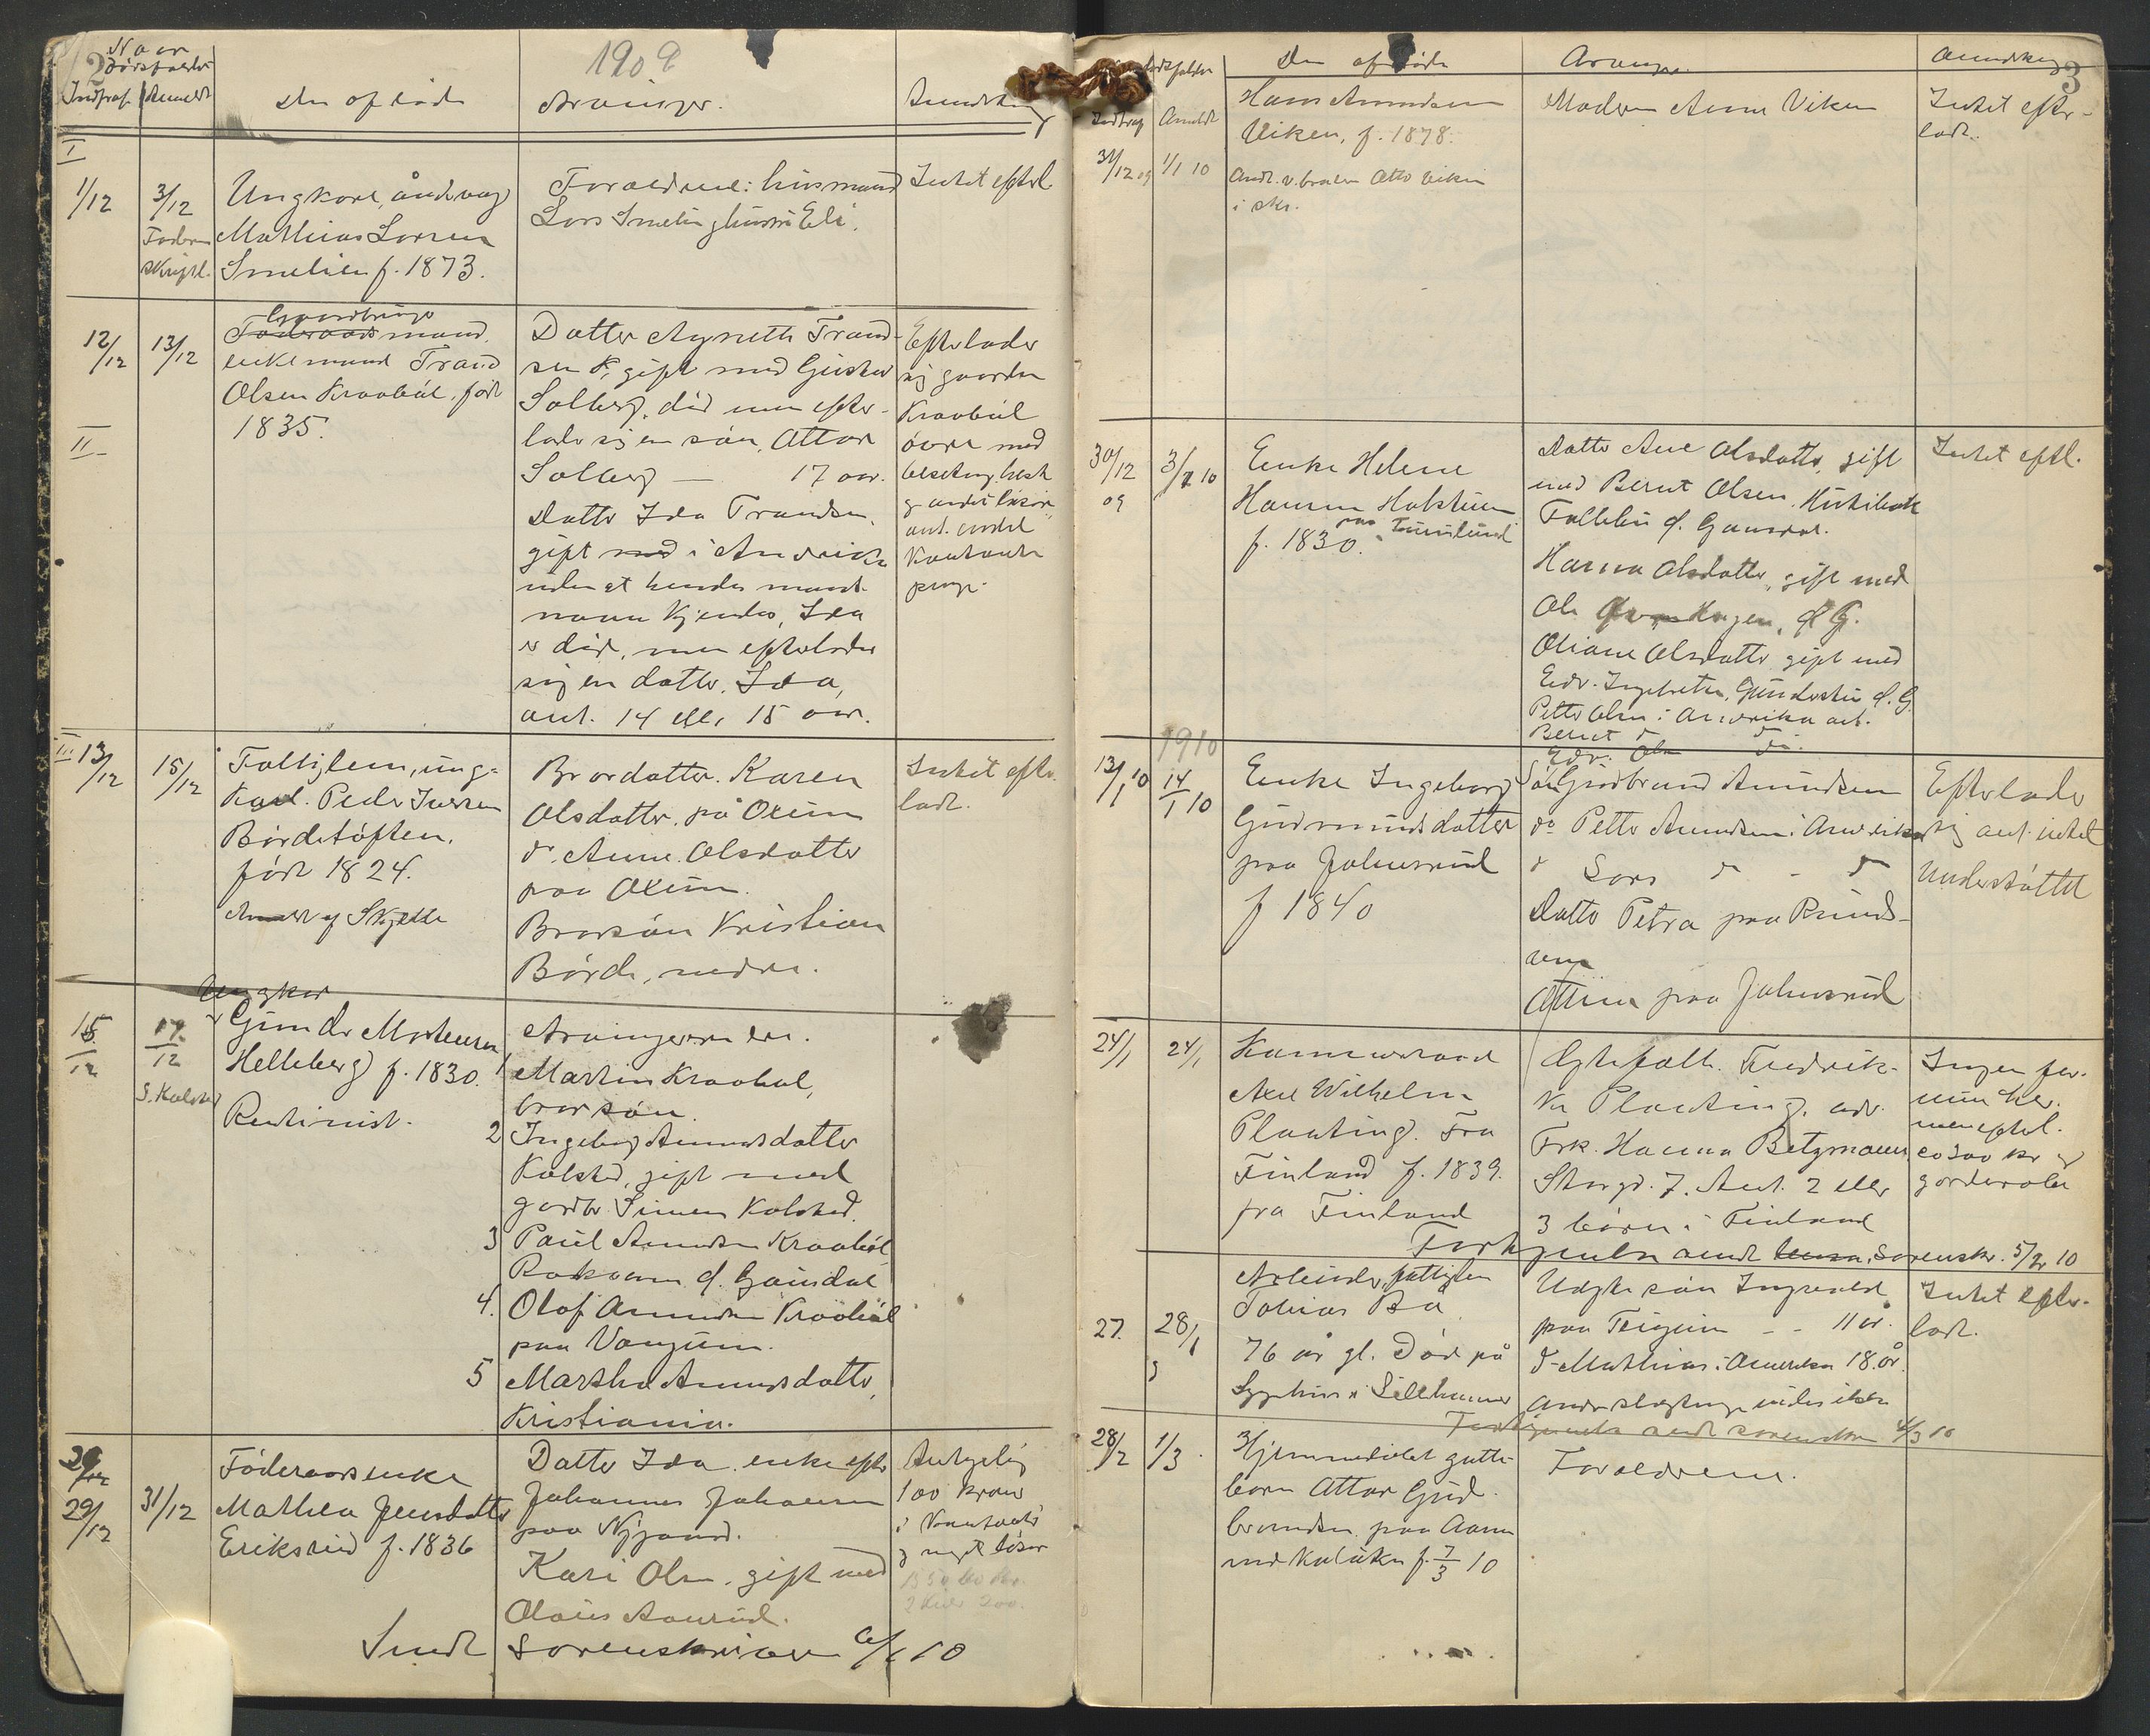 2
Naar
dødsfaldet
1909
Indtraf Anmeldt
Den afdøde
Arvinger.
Anmerkning
I
1/12
3/12
Faderen
skriftl.
Ungkarl, åndsvag
Mathias Larsen
Smelien f. 1873.
Forældrene: husmand
Lars Smelien hustru Eli.
Intet efterl.
II
12/12
13/12
Gaardbruger
Føderaadsmand,
enkemand Trand
Olsen Kraabøl, født
1835.
Datter Agnethe Trand-
sen K, gift med Gustav
Solberg, død men efter-
lader sig en søn, Ottar
Solberg — 17 aar.
Datter Ida Trandsen,
gift med i Amerika
uden at hendes mands
navn kjendes, Ida
er død, men efterlader
sig en datter, Ida,
ant. 14 eller 15 aar.
Efterlader
sig gaarden
Kraabøl
øvre med
besetning, hest
og andet løsøre
ant. endel
Kontante
penge.
III
13/12
15/12
Fattiglem, ung-
karl. Peder Iversen
Børdetøften,
født 1824.
Anmeldt af Skjelle
Brordatter. Karen
Olsdatter, på Oxum
do. Anne Olsdatter
paa Oxum.
Brorsøn Kristian
Børde, nedre.
Intet efter-
ladt.
15/12
17/12
S. Kalstad
Ungkar
Gunder Mortensen
Helleberg f. 1830.
Rentenist.
Arvingerne er.
1 Martin Kraabøl,
brorsøn.
2 Ingeborg Amundsdatter
Kalstad, gift med
gardbr. Simen Kalstad.
3 Paul Amundsen Kraabøl
Roksvern Ø. Gausdal
4. Olof Amundsen Kraabøl
paa Vangum.
5 Martha Amundsdatter,
Kristiania.
29/12
31/12
Føderaadsenke
Mathea Jensdatter
Eriksrud f. 1836
Datter Ida enke efter
Johannes Johansen
paa Nygaard.
Kari Olsen, gift med
Olaus Aanrud.
Antagelig
100 kroner
i kontanter
og noget løsøre
Sendt sorenskriver 6/1 10
3
Indtraf Anmeldt
Den afdøde
Arvinger.
Anmerkning
31/12 09
1/1 10
Hans Amundsen
Viken, f. 1878.
Anm. v. broder Otto Viken
i skr.
Moderen Anne Viken
Intet efter-
ladt.
30/12
09
3/1 10
Enke Helene
Hansen Holsteen
f. 1830. paa Tunelund
Datter Ane Olsdatter, gift
med Bernt Olsen
Follebu Ø. Gausdal.
Hanna Olsdatter, gift med
Ole Hagen, Ø G.
Oliane Olsdatter gift med
Edv. Ingebretsen, Ø. G.
Petter Olsen i Amerika ant.
Bernt do
Edv. Olsen do.
1910
13/1 10
14/1 10
Enke Ingeborg
Gudmundsdatter
paa Johnsrud
f 1840
Søn Gudbrand Amundsen
do Petter Amundsen i Amerika
do Lars do - do
Datter Petra paa Runds-
veen
Ottine paa Johnsrud
Efterlader
sig ant. intet
Understøttet
24/1
24/1
Kammerraad
Axel Wilhelm
Planting. Fra
Finland f. 1839.
fra Finland
Ægtefælle. Fredrik-
ke Planting. adr.
Frk. Hanna Betzmann,
Storgd. 7. Ant. 2 eller
3 børn i Finland
Ingen for-
mue her.
men efterl.
ca 300 kr og
garderobe
Fortegnelse sendt sorenskr. 5/2 10
27.
28/1
Arbeider, fattiglem
Tobias Bø
76 år gl. Død på
Sygehus i Lillehammer
Uægte søn Ingvald
paa Teigum - - 11 år.
do Mathias i Amerika 18. år.
Andre slægtninge vides ikke
Intet efter-
ladt.
Fortegnelse sendt sorenskr. 4/3 10
28/2
1/3
Hjemmedøbt gutte-
barn Ottar Gud-
brandsen paa Aaen
ved Kalåken f. 7/3 10
Forældrene.